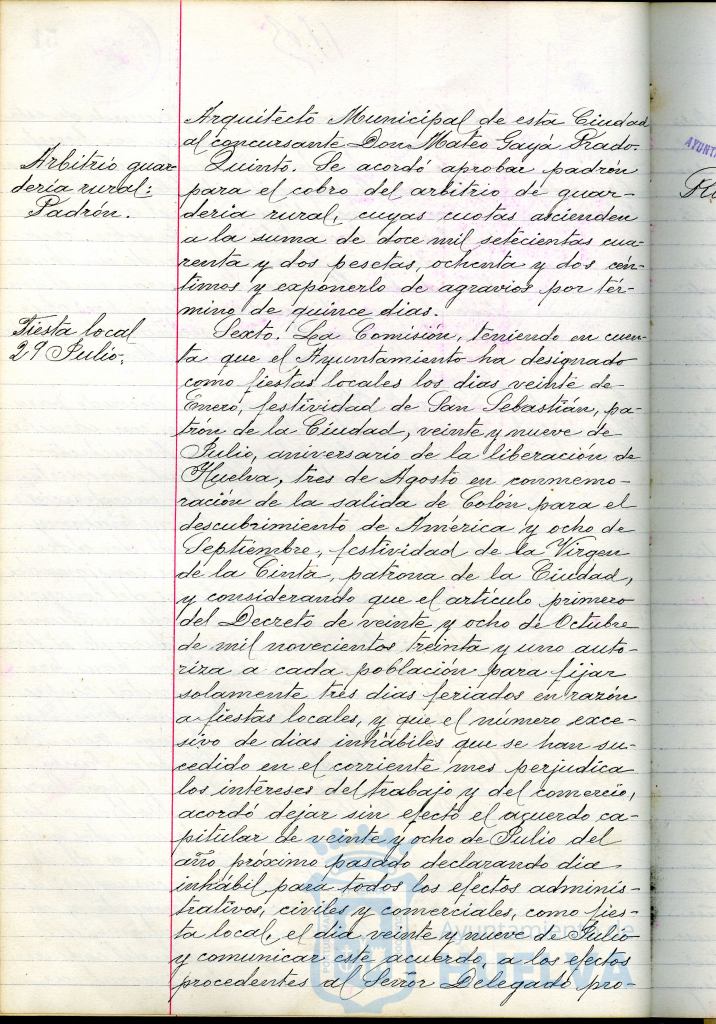 Arquitecto Municipal de esta Ciudad
al concursante Don Mateo Gayá Prado.
Arbitrio guar-
deria rural:
Padrón.
Quinto. Se acordó aprobar padrón
para el cobro del arbitrio de guar-
deria rural, cuyas cuotas ascienden
a la suma de doce mil setecientas cua-
renta y dos pesetas, ochenta y dos cén-
timos y exponerlo de agravios por tér-
mino de quince dias.
Fiesta local
29 Julio.
Sexto. La Comisión, teniendo en cuen-
ta que el Ayuntamiento ha designado
como fiestas locales los dias veinte de
Enero, festividad de San Sebastián, pa-
trón de la Ciudad, veinte y nueve de
Julio, aniversario de la liberación de
Huelva, tres de Agosto en conmemo-
ración de la salida de Colón para el
descubrimiento de América y ocho de
Septiembre, festividad de la Virgen
de la Cinta, patrona de la Ciudad,
y considerando que el artículo primero
del Decreto de veinte y ocho de Octubre
de mil novecientos treinta y uno auto-
riza a cada población para fijar
solamente tres dias feriados en razón
a fiestas locales, y que el número exce-
sivo de dias inhábiles que se han su-
cedido en el corriente mes perjudica
los intereses del trabajo y del comercio,
acordó dejar sin efecto el acuerdo ca-
pitular de veinte y ocho de Julio del
año próximo pasado declarando dia
inhábil para todos los efectos adminis-
trativos, civiles y comerciales, como fies-
ta local, el dia veinte y nueve de Julio
y comunicar este acuerdo, a los efectos
procedentes al Señor Delegado pro-
Ayuntamiento de
HUELVA
AYUNT